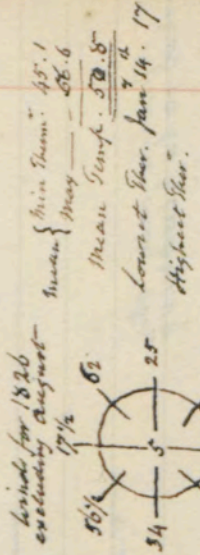 Winds for 1826
excluding August
17 1/2
56 1/2 62
34 5 25
Mean { Min Therm. 45.1
Max — 56.6
Mean Temp. 50.8
Lowest Ther. Jany 14th. 17
Highest Ther.